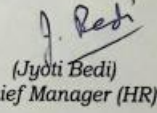 J. Bedi
(Jyoti Bedi)
ief Manager (HR)